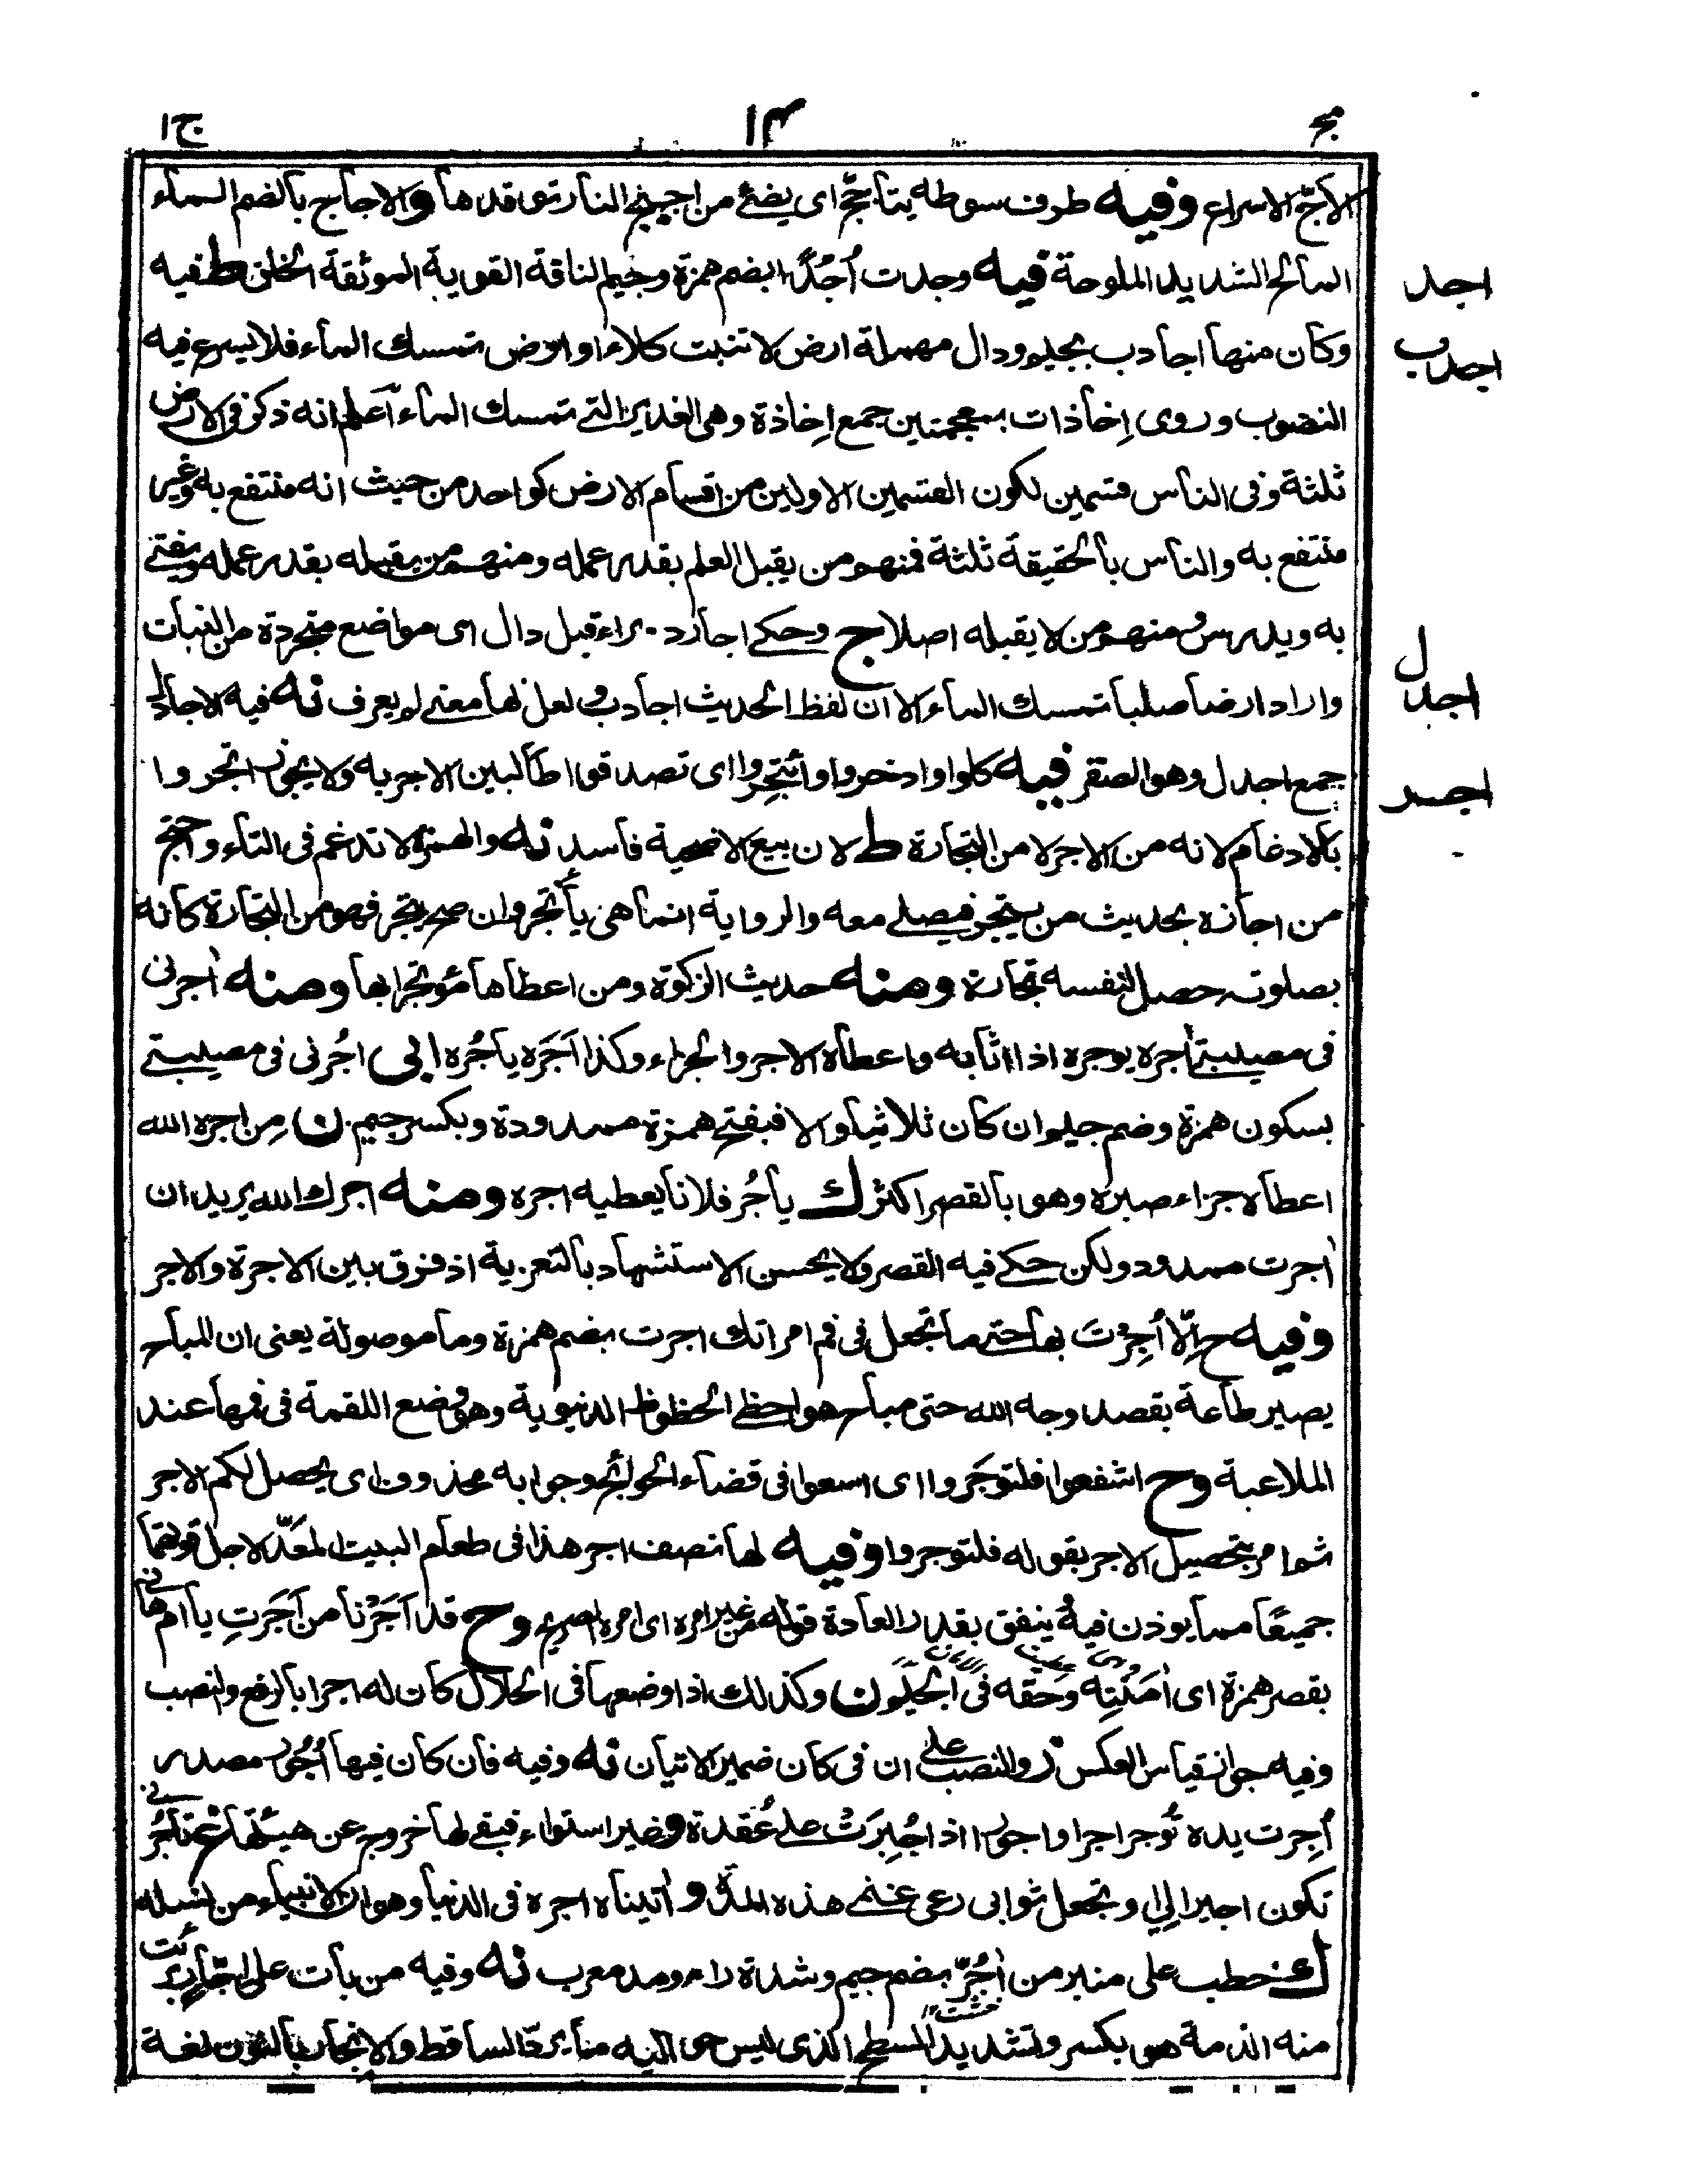 مج ١٤ ج١
الأجّ الاسراع وفيه طرف سوطه يتأجّج اى يضئ من اجيج النار توقدها والاجاج بالضم الماء
المالح الشديد الملوحة فيه وجدت اُجُدًا بضم همزة وجيم الناقة القوية الموثقة الخلق ط فيه
وكان منها اجادب بجيم ودال مهملة ارض لا تنبت كلاء او ارض تمسك الماء فلا يسرع فيه
النضوب وروى اِخاذات بمعجمتين جمع اِخاذة وهى الغدير التى تمسك الماء اعلم انه ذكر فى الارض
ثلثة وفى الناس قسمين لكون القسمين الاولين من اقسام الارض كواحد من حيث انه منتفع به وغير
منتفع به والناس بالحقيقة ثلثة فمنهم من يقبل العلم بقدر عمله ومنهم من يقبله بقدر عمله ويفتى
به ويدرس ومنهم من لا يقبله اصلا ج وحكى اجارد براء قبل دال اى مواضع متجردة من النبات
واراد ارضا صلبا تمسك الماء الا ان لفظ الحديث اجادب ولعل لها معنى لم يعرف نه فيه الاجادل
جمع اجدل وهو الصقر فيه كلوا وادخروا وأتجروا اى تصدقوا طالبين الاجر به ولا يجوز اتجروا
بالادغام لانه من الاجر لا من التجارة ط لان بيع الاضحية فاسد نه والهمزة لا تدغم فى التاء واحتج
من اجازه بحديث من يتجر فيصلى معه والرواية انما هى يأتجر وان صح يتجر فهو من التجارة كانه
بصلوته حصل لنفسه تجارة ومنه حديث الزكوة ومن اعطاها مؤتجرا بها ومنه اٰجرنى
فى مصيبتى اٰجره يوجره اذا اثابه واعطاه الاجر والجزاء وكذا اَجَرَه يأجُره ابى اجُرنى فى مصيبتى
بسكون همزة وضم جيم ان كان ثلاثيا والا فبفتح همزة ممدودة وبكسر جيم ن مِن اجره الله
اعطاه جزاء صبره وهو بالقصر اكثر ك يأجُر فلانا يعطيه اجره ومنه اجرك الله يريد ان
اٰجرت ممدود ولكن حكى فيه القصر ولا يحسن الاستشهاد بالتعزية اذ فرق بين الاجرة والاجر
وفيه ح اِلّا اُجِرْتَ بها حتى ما تجعل فى فم امراتك اجرت بضم همزة وما موصولة يعنى ان المباح
يصير طاعة بقصد وجه الله حتى مباح هو احظ الحظوظ الدنيوية وهو وضع اللقمة فى فمها عند
الملاعبة وح اشفعوا فلتوجَروا اى اسعوا فى قضاء الحوائج وجوابه محذوف اى يحصل لكم الاجر
ثم امر بتحصيل الاجر بقوله فلتوجروا وفيه لها نصف اجر هذا فى طعام البيت المعَدّ لاجل قوتهما
جميعًا مما يوذن فيه ينفق بقدر العادة قوله من غير امره اى امره الصريح وح قد آجَرْنا من آجَرَتِ يا ام هانئ
بقصر همزة اى اٰمَنْتِه وحَقه فى الجيم ن وكذلك اذا وضعها فى الحلال كان له اجر بالرفع والنصب
وفيه جواز قياس العكس ز والنصب على ان فى كان ضمير الاتيان نه وفيه فان كان فيها اُجُور مصدر
اُجِرت يده تُوجر اجرا واجورا اذا جُبِرَتْ على عُقدة وغير استواء فبقى لها خروج عن هيئتها غ تأجُرنى
تكون اجيرا لى وتجعل ثوابى رعى غنمى هذه المدّة واٰتيناه اجره فى الدنيا وهو ان الانبياء من نسله
ك خطب على منبر من اٰجُرّ بضم جيم وشدة راء ومد معرب نه وفيه من بات على اجّار برئت
منه الذمة هو بكسر وتشديد السطح الذى ليس حواليه ما يردّ الساقط والانجار بالنون لغة
خشت
اجد
اجدب
اجدل
اجر